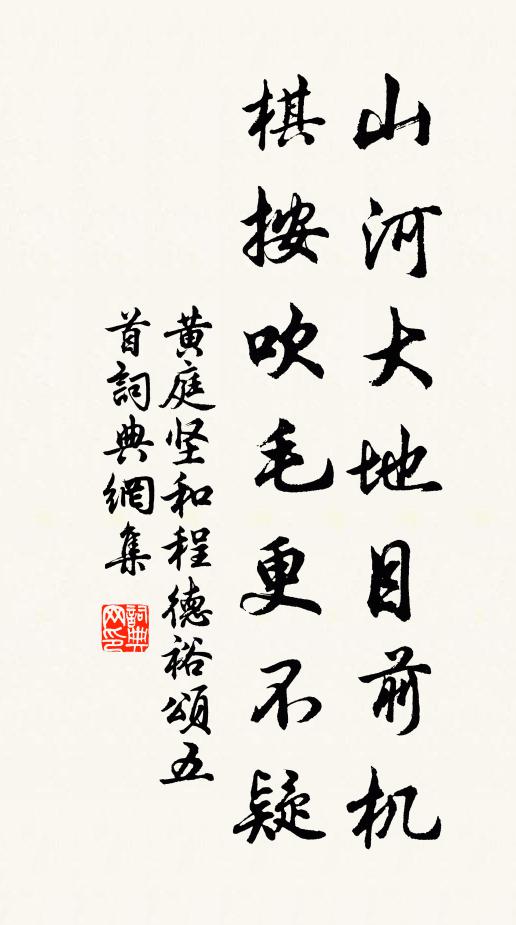 山河大地目前机
棋按吹毛更不疑
黄庭坚和程德裕頌五
首詞典網集
詞典
网印